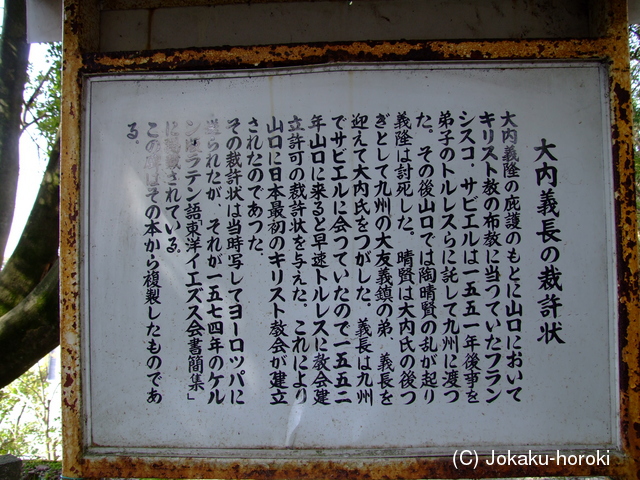 大内義長の裁許状
大内義隆の庇護のもとに山口において
キリスト教の布教に当っていたフラン
シスコ、サビエルは一五五一年後事を
弟子のトルレスらに託して九州に渡つ
た。その後山口では陶晴賢の乱が起り
義隆は討死した。晴賢は大内氏の後つ
ぎとして九州の大友義鎮の弟、義長を
迎えて大内氏をつがした。義長は九州
でサビエルに会つていたので一五五二
年山口に来ると早速トルレスに教会建
立許可の裁許状を与えた。これにより
山口に日本最初のキリスト教会が建立
されたのであつた。
その裁許状は当時写してヨーロツパに
送られたが、それが一五七四年のケル
ン版ラテン語「東洋イエズス会書簡集」
に されている。
この はその本から複製したものであ
る。
(C) Jokaku-horoki